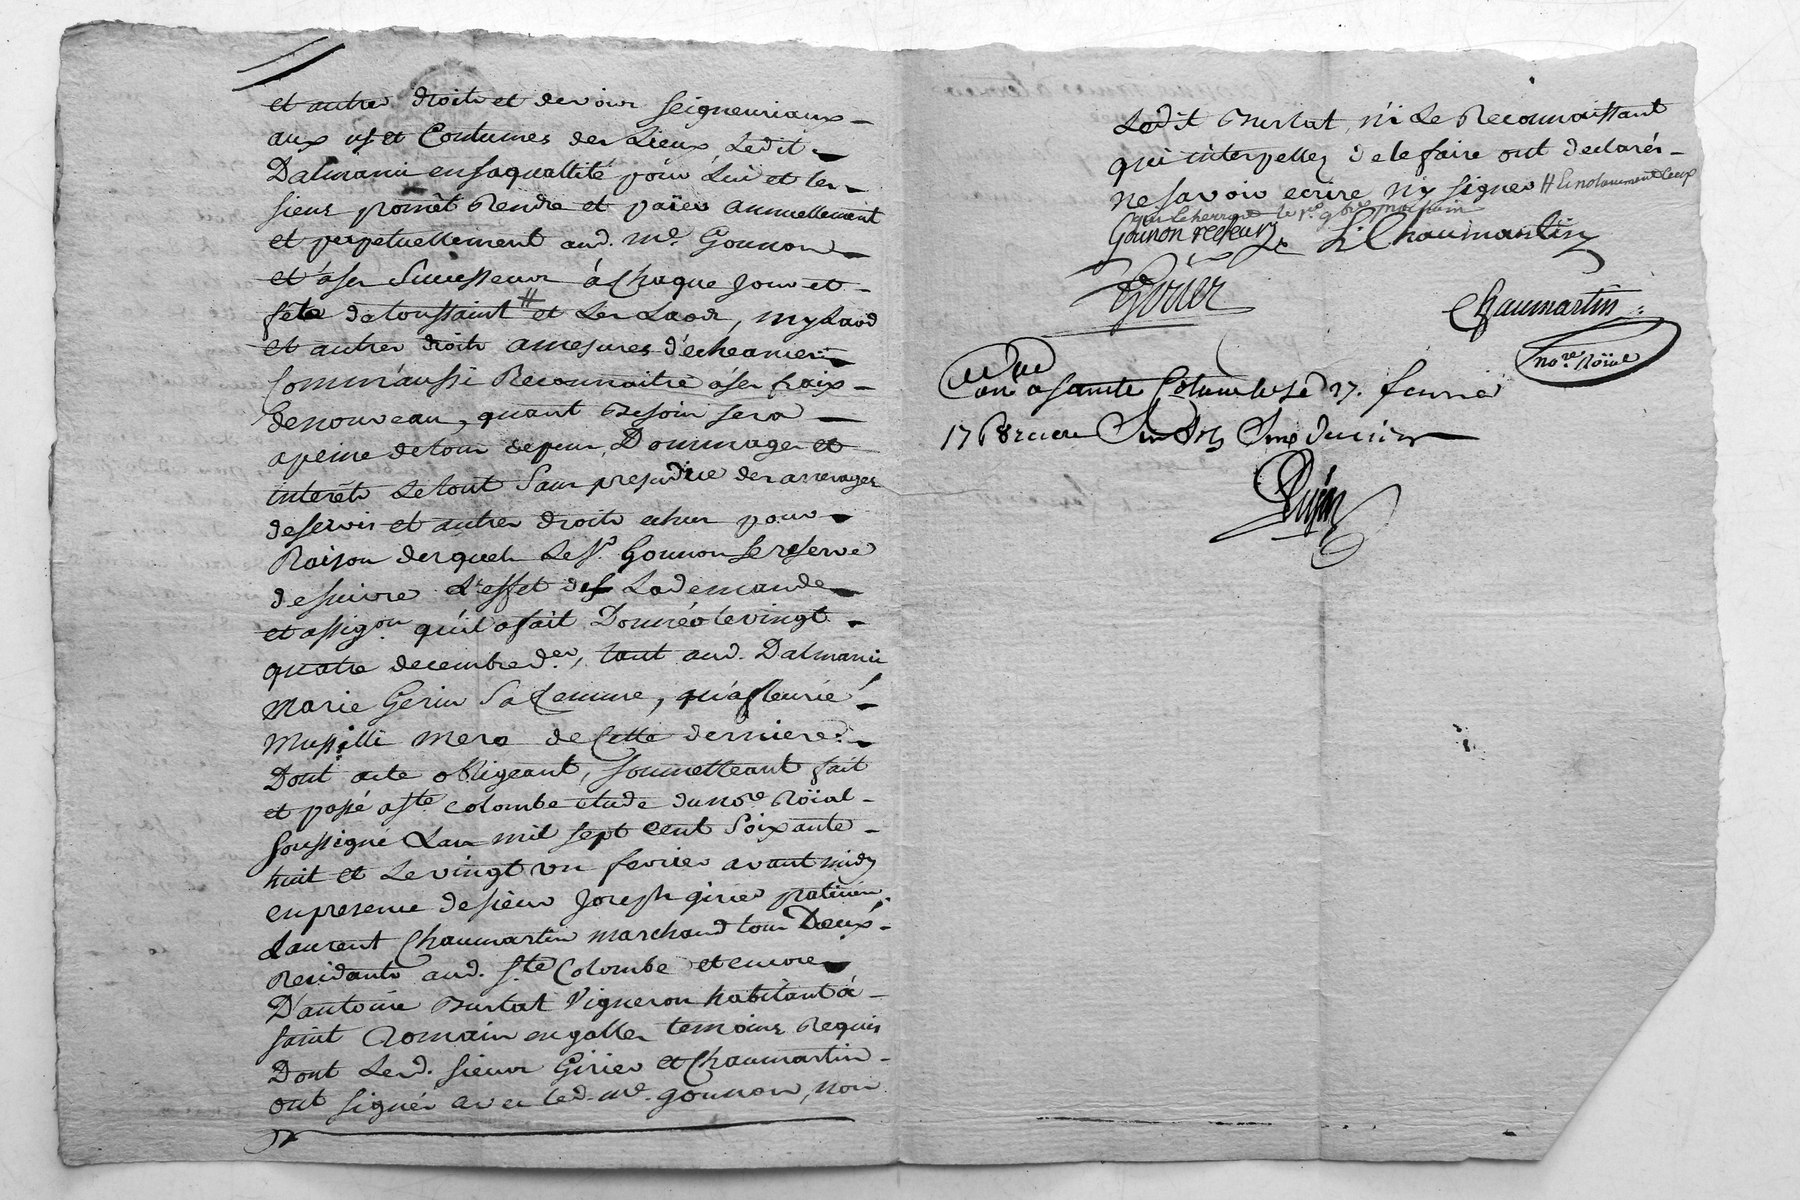 et autres droits et devoirs seigneuriaux
aux us et Coutumes des Lieux Ledit
Dalmani ensaquallité pour Lui et les
siens promêt Rendre et païer annuellement
et perpetuellement aud. me. Gounon
et àses Successeurs à Chaque jour et
fete datoussaint # et Les Laods, mylaod
et autres droits amesures d'echeances
Comm'aussi Reconnoitre àses fraix
denouveau, quant Besoin sera
apeine detous depens, Dommages et
interêts Letout Sans prejudice des arrerages
deservis et autres droits echus pour
Raison desquels Le Sr. Gounon se reserve
desuivre L'effet de Lademande
et assigon. qu'il afait Donnéo levingt
quatre decembre der., tant aud. Dalmani
Marie Gerin Sa femme, qu'afleurie
Mussilli mere de Cette derniere.
Dont acte obligeant, soumetteant fait
et passé aste Colombe etude dunore. Roïal
soussigné Lan mil sept cent Soixante
huit et Levingt un fevrier avant midy
enpresence desieur Joseph girier praticien
Laurent Chaumartin marchand tous Deux
Residants aud. ste Colombe et encore
D'antoine Burlat Vigneron habitant à
saint Romain engalles temoins Requis
Dont Lesd. sieurs Girier et Chaumartin
ont signér avec led. me. gounon, non
Ledit Burlat, ni Le Reconnaissant
qui interpellez delefaire ont declarér
ne savoir ecrire ny signer # Et notamment Ceux
le 1er 9bre prochain
Gounon recteur L. Chaumartin
Girier
Chaumartin
nore. Roïal
Con a Sainte Colombe Le 27. fevrier
1768